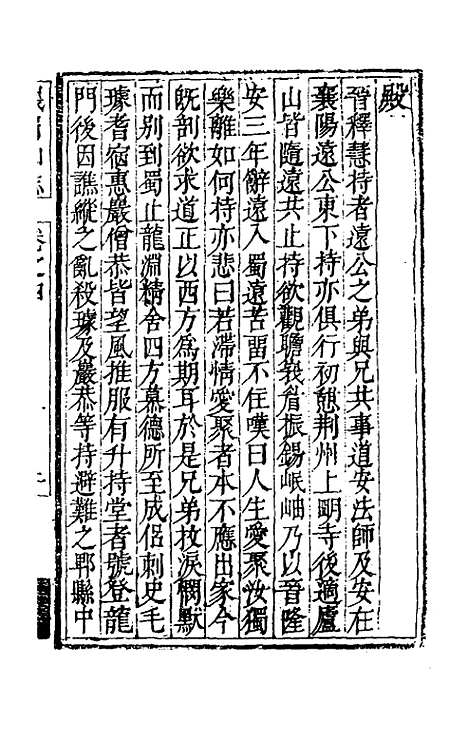 殿
晉釋慧持者遠公之弟與兄共事道安法師及安在
襄陽遠公東下持亦俱行初憩荆州上明寺後適廬
山皆隨遠共止持欲觀瞻峩眉振錫岷岫乃以晉隆
安三年辭遠入蜀遠苦留不住嘆曰人生愛聚汝獨
樂離如何持亦悲曰若滯情愛聚者本不應出家今
旣剖欲求道正以西方爲期耳於是兄弟抆淚憫默
而别到蜀止龍淵精舍四方慕德所至成侶刺史毛
璩耆宿惠嚴僧恭皆望風推服有升持堂者號登龍
門後因譙縱之亂殺璩及嚴恭等持避難之郫縣中